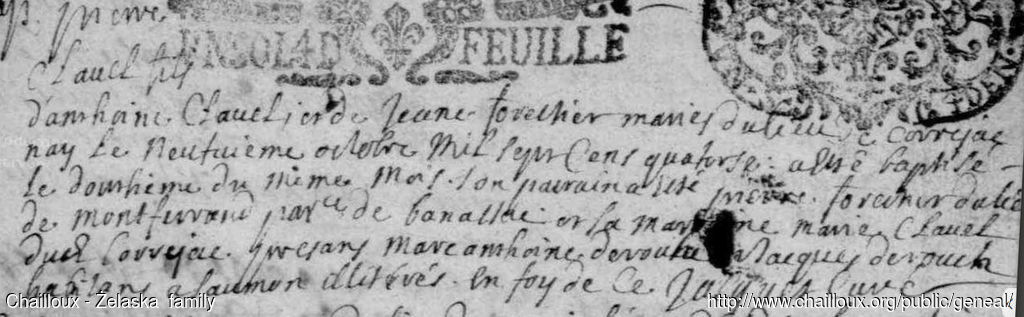 bp. pierre
EN SOL 4 D FEUILLE
Clavel fils
d'anthoine Clavel, et de Jeane forestier mariés du lieu de Correjac
nay le neufvieme octobre mil sept Cens quatorse. a esté baptisé
le douzhieme du mesme mois. son parrain a esté pierre forestier du lieu
de montferrand par.e de banassac et la marraine marie Clavel
dud Correjac. presans marc anthoine derouch Jacques derouch
habitans a saumon illiterés. en foy de ce Curé
Chailloux - Żelaska family
http://www.chailloux.org/public/geneal/